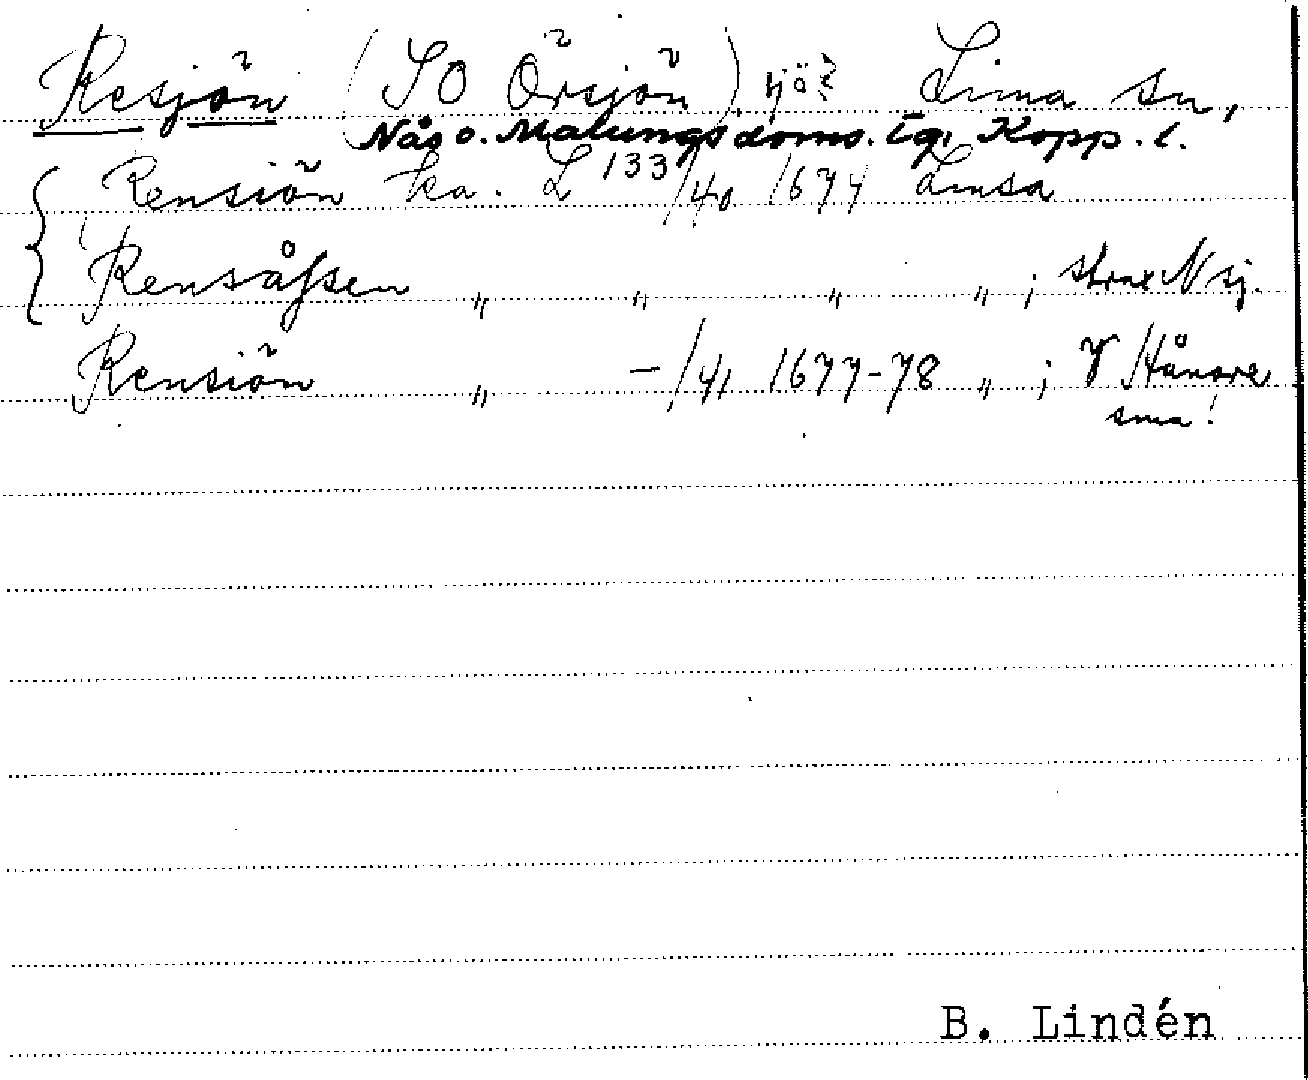 Resjön (SO Örsjön) sjö Lima sn,
Nås o. Malungs doms. tg. Kopp. l.
Rensiön ka. L 133/40 1674 Limsa
Rensåßen " " " " ; strax N sj.
Rensiön " -/41 1677-78 " ; V
B. Lindén